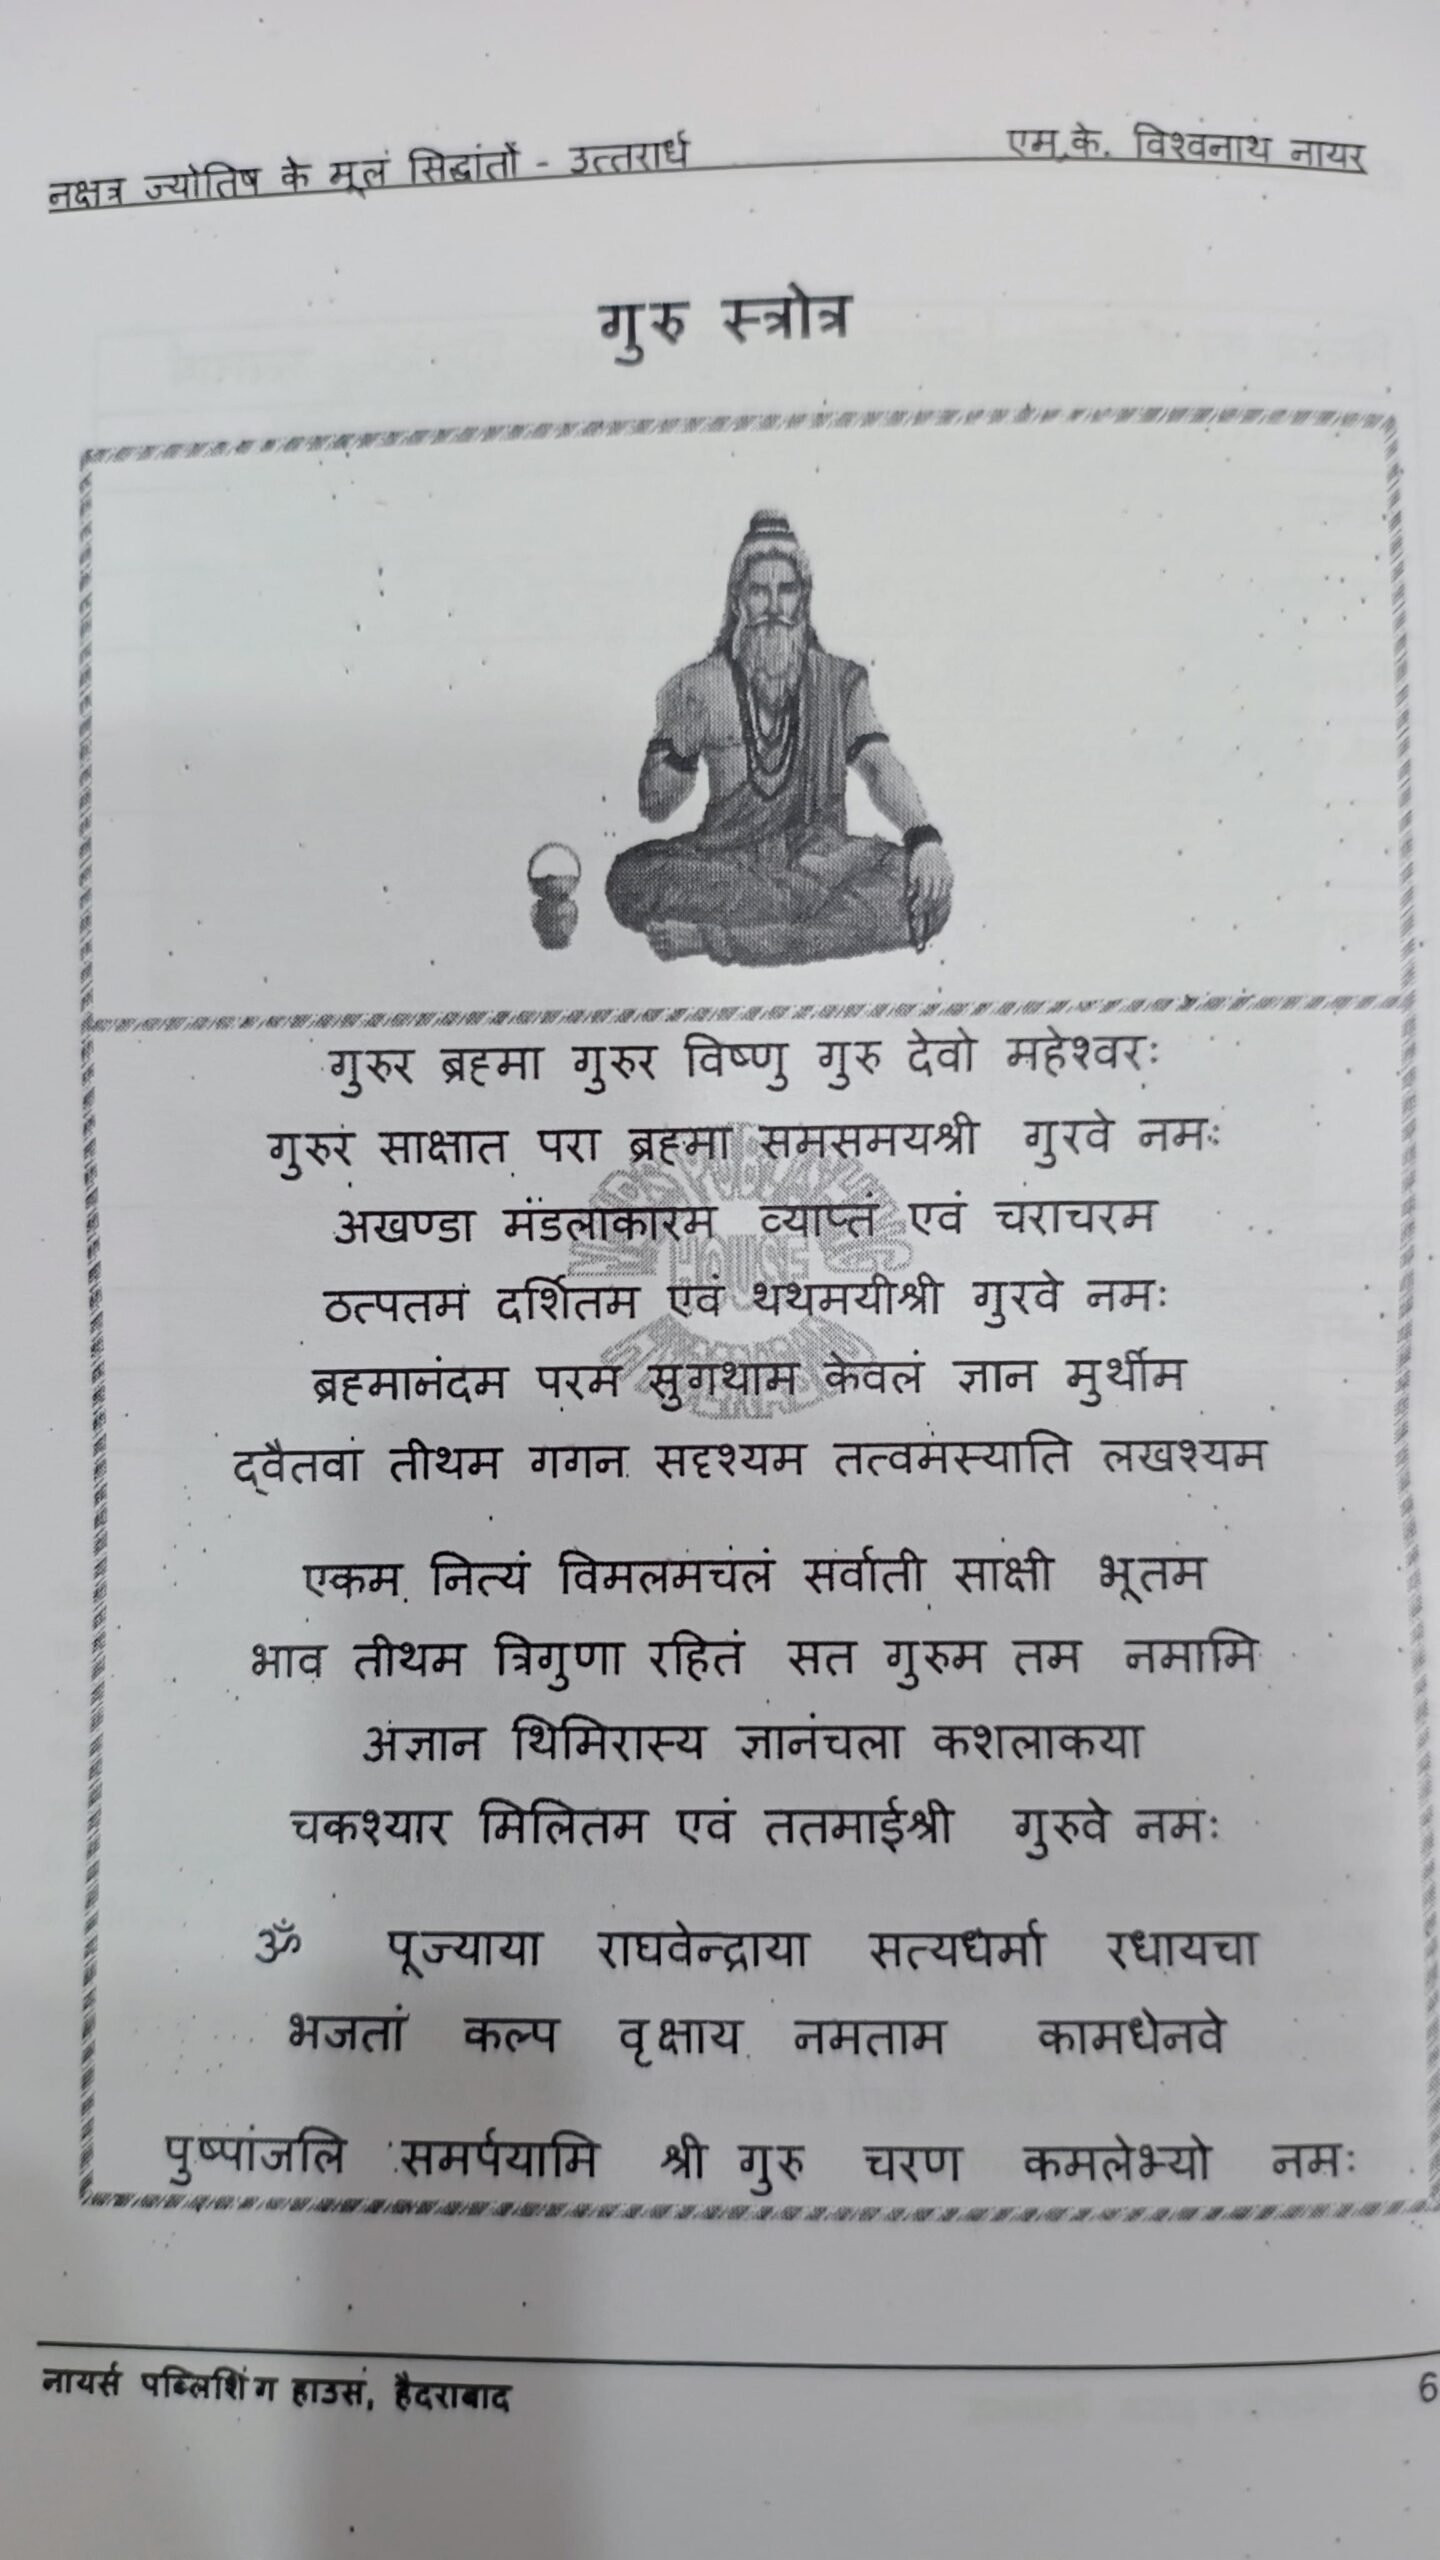 नक्षत्र ज्योतिष के मूलं सिद्धांतों - उत्तरार्ध एम.के. विश्वनाथ नायर
गुरु स्त्रोत्र
गुरुर ब्रह्मा गुरुर विष्णु गुरु देवो महेश्वरः
गुरुरं साक्षात परा ब्रह्मा समसमयश्री गुरवे नमः
अखण्डा मंडलाकारम व्याप्तं एवं चराचरम
ठत्पतम दर्शितम एवं थथमयीश्री गुरवे नमः
ब्रह्मानंदम परम सुगथाम केवलं ज्ञान मुर्थीम
द्वैतवां तीथम गगन सदृश्यम तत्वमस्याति लखश्यम
एकम नित्यं विमलमचलं सर्वाती साक्षी भूतम
भाव तीथम त्रिगुणा रहितं सत गुरुम तम नमामि
अज्ञान थिमिरास्य ज्ञानंचला कशलाकया
चकश्यार मिलितम एवं ततमाईश्री गुरुवे नमः
ॐ पूज्याया राघवेन्द्राया सत्यधर्मा रधायचा
भजतां कल्प वृक्षाय नमताम कामधेनवे
पुष्पांजलि समर्पयामि श्री गुरु चरण कमलेभ्यो नमः
नायर्स पब्लिशिंग हाउस, हैदराबाद 6